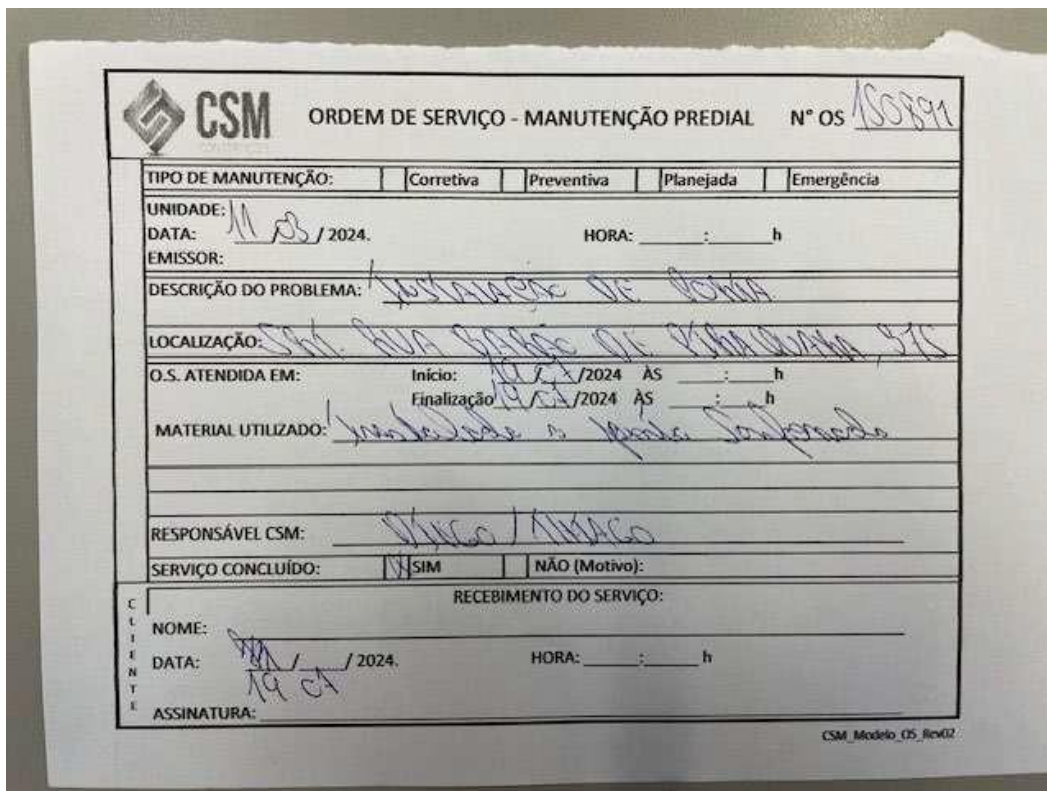 CSM ORDEM DE SERVIÇO - MANUTENÇÃO PREDIAL N° OS 150891
TIPO DE MANUTENÇÃO: Corretiva Preventiva Planejada Emergência
UNIDADE:
DATA: 11/03/2024. HORA: ___:___h
EMISSOR:
DESCRIÇÃO DO PROBLEMA: INSTALAÇÃO DE PORTA
LOCALIZAÇÃO: RUA BARÃO DE PIRAQUARA, 975
O.S. ATENDIDA EM: Início: 19/07/2024 ÀS ___:___h
Finalização 19/07/2024 ÀS ___:___h
MATERIAL UTILIZADO: Instalado a porta
RESPONSÁVEL CSM: / THIAGO
SERVIÇO CONCLUÍDO: X SIM NÃO (Motivo):
RECEBIMENTO DO SERVIÇO:
CLIENTE
NOME:
DATA: / /2024. HORA: ___:___h
19 07
ASSINATURA:
CSM_Modelo_OS_Rev02